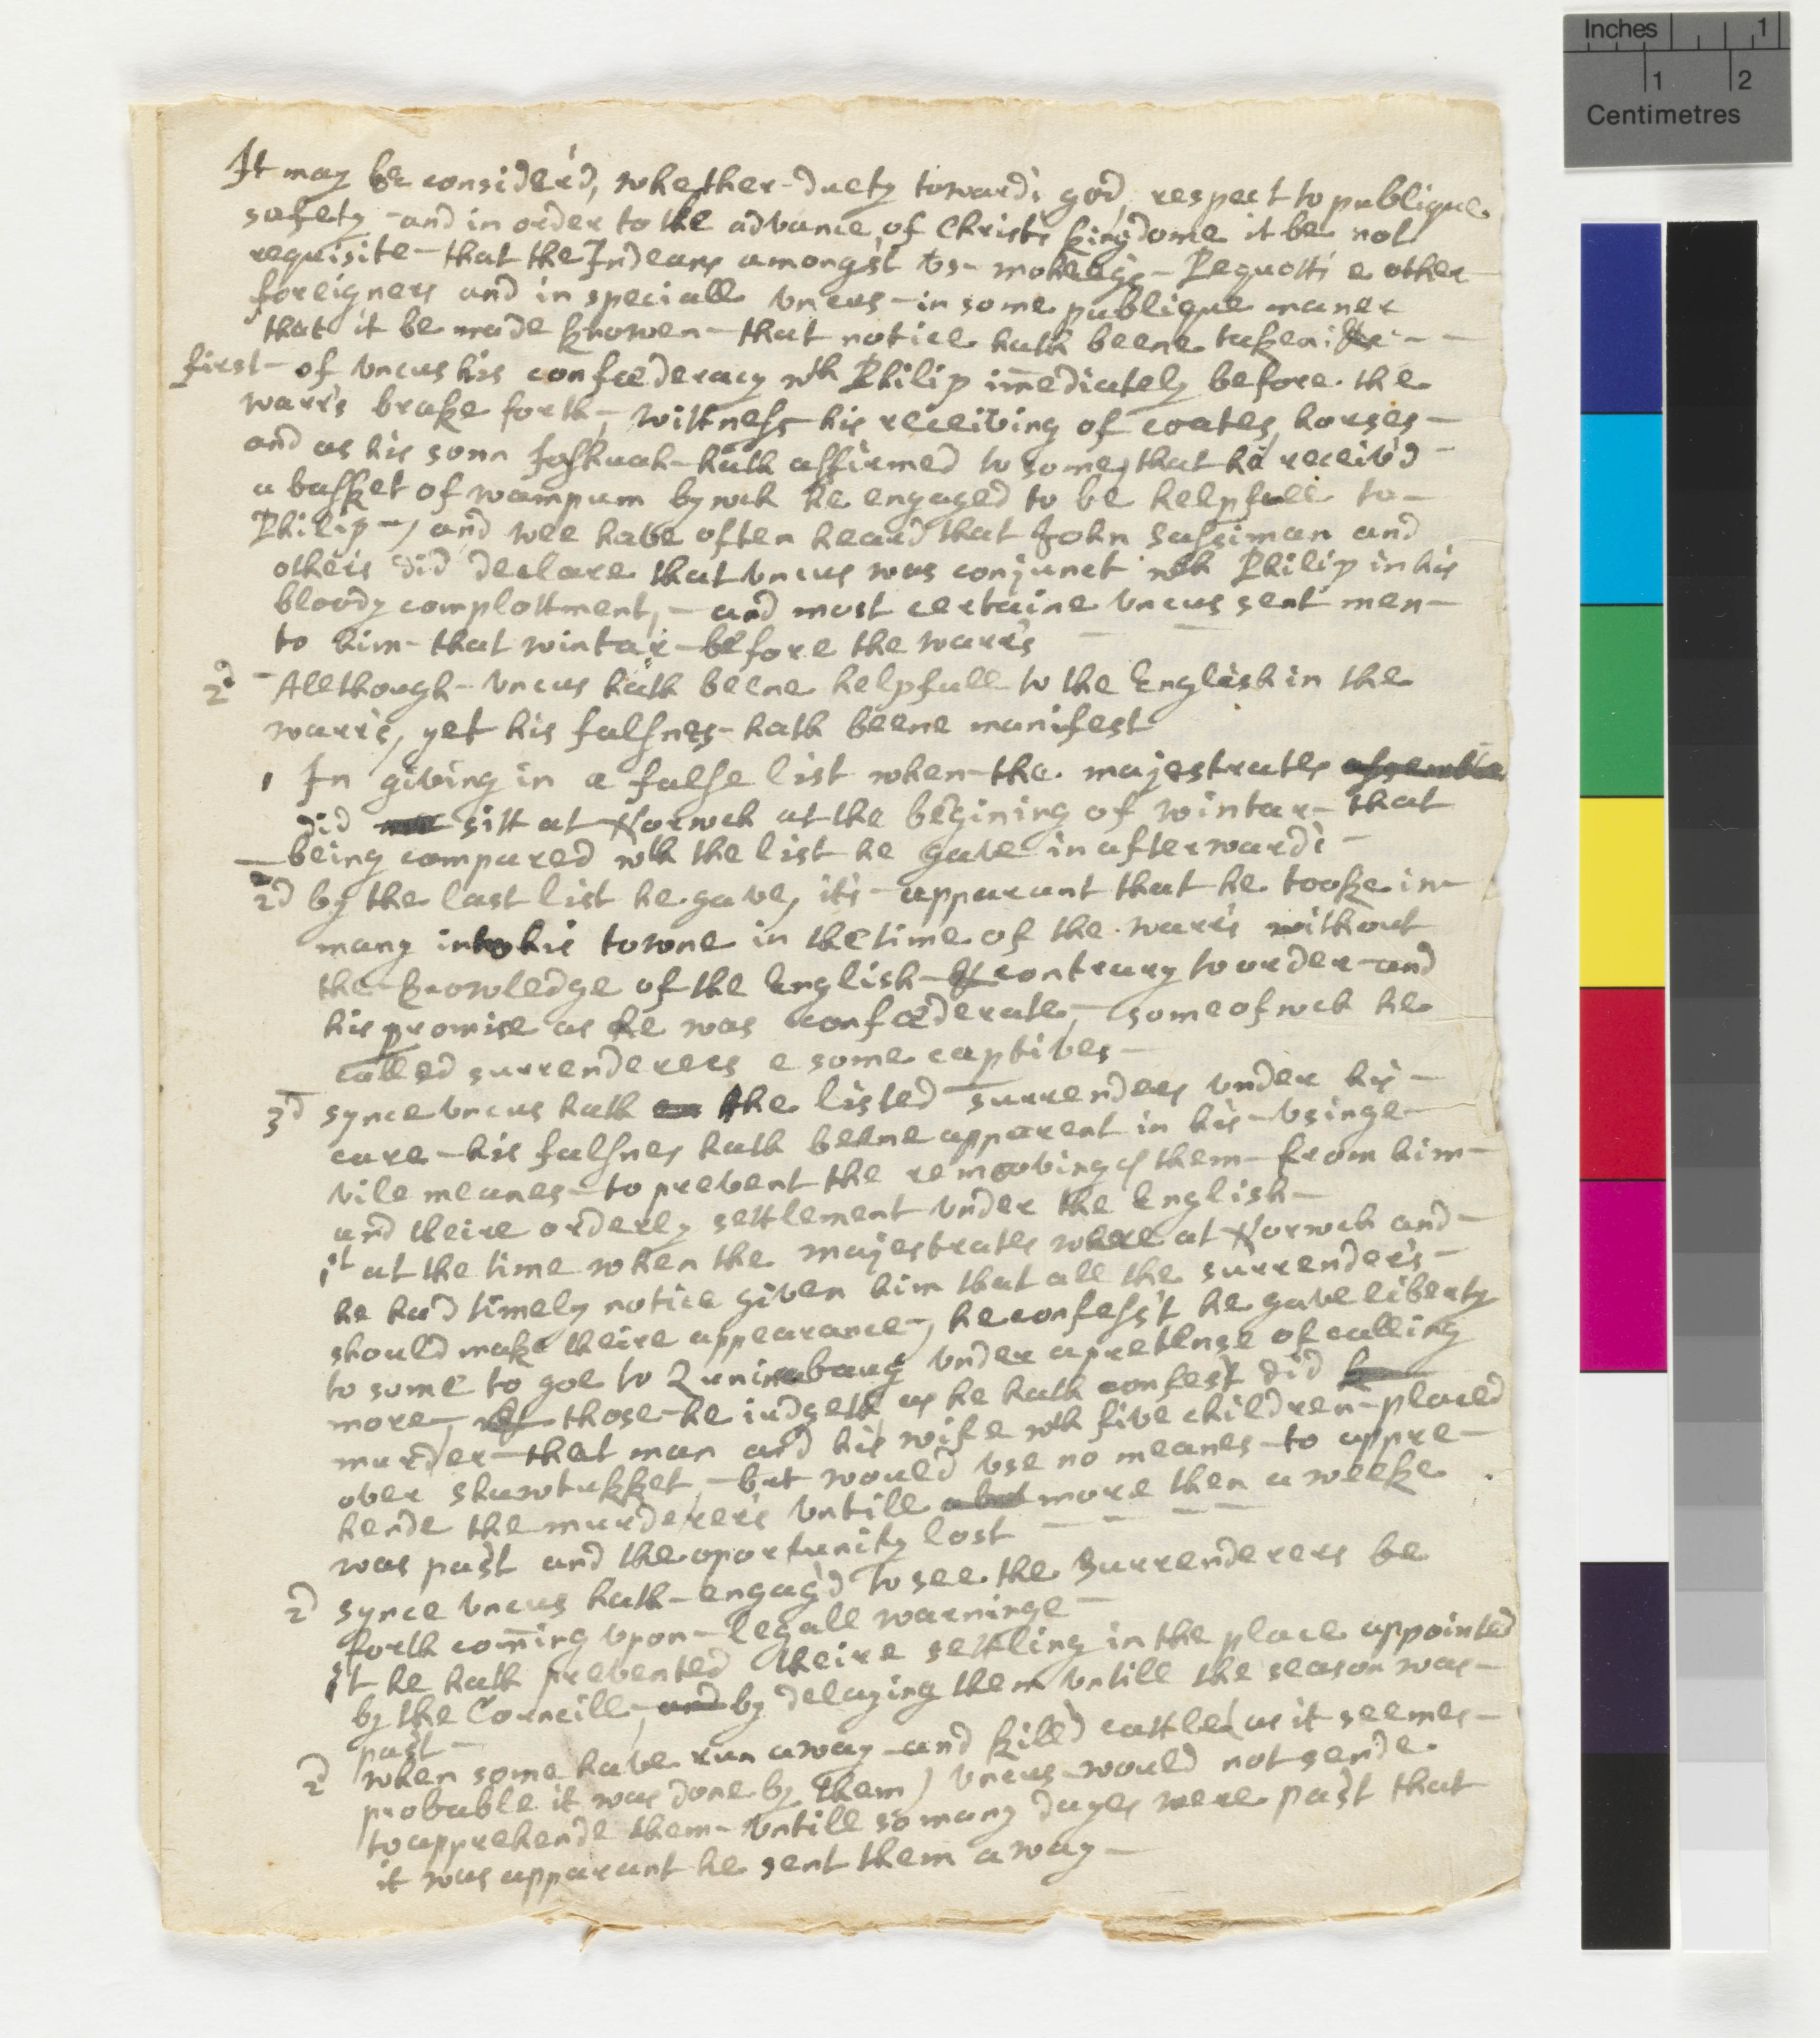 It may be consider'd, whether-duety toward's god, respect to publique
safety - and in order to the advance of Christs kingdome it be not
requisite - that the Indeans amongst us - moheags - Pequotts e other
foreigners and in speciall Uncus - in some publique maner
that it be made knowen - that notice hath beene taken:
first - of Uncus his confœderacy wth Philip im̄ediately before the
warr's brake forth -, wittness his receiving of coates, horses -
and as his sonn Joshuah - hath affirmed to some, that he receiv'd -
a basket of wampum by wch he engaged to be helpfull to -
Philip -, and wee have often heard that John Sassiman and
others did declare that Uncus was conjunct wth Philip in his
bloody complottment, - and most certaine Uncus sent men -
to him - that wintar - before the warr's
2d - Allthough - Uncus hath beene helpfull to the English in the
warr's, yet his falsnes - hath beene manifest
1 In giving in a false list when - the majestrates assemble
did sitt at Norwch at the begining of wintar - that
- being compared wth the list he gave in afterwards -
2d by the last list he gave, its - apparant that he tooke in -
many into his towne in the time of the warr's without
the knowledge of the English - contrary to order - and
his promise as he was confœderate, - some of wch he
called surrenderers e some captives -
3d synce Uncus hath the listed surrenders under his -
care - his falsnes hath beene apparent in his - usinge -
vile meanes - to prevent the remooving of them - from him -
and theire orderly settlement under the English -
1st at the time when the majestrates where at Norwch and -
he had timely notice given him that all the surrender's -
should make theire appearance -, he confess't he gave liberty
to some to goe to Quninabaug under a pretense of calling
more -, those - he iudgeth, as he hath confest did
murder - that man and his wife wth five children - placed
over shawtukket - but would use no meanes - to appre -
hende the murderer's untill more then a weeke
was past and the oportunity lost - - - -
2d synce Uncus hath - engag'd to see the surrenderers be
forth com̄ing upon - legall warninge -
1st he hath prevented theire settling in the place appointed
by the Corncill -, and by delaying them untill the season was -
past -
2d when some have run away - and kill'd cattle (as it seemes -
probable it was done by them) Uncus - would not sende
to apprehende them - untill so many dayes were past that
it was apparant he sent them away -
Inches 1
1 2
Centimetres